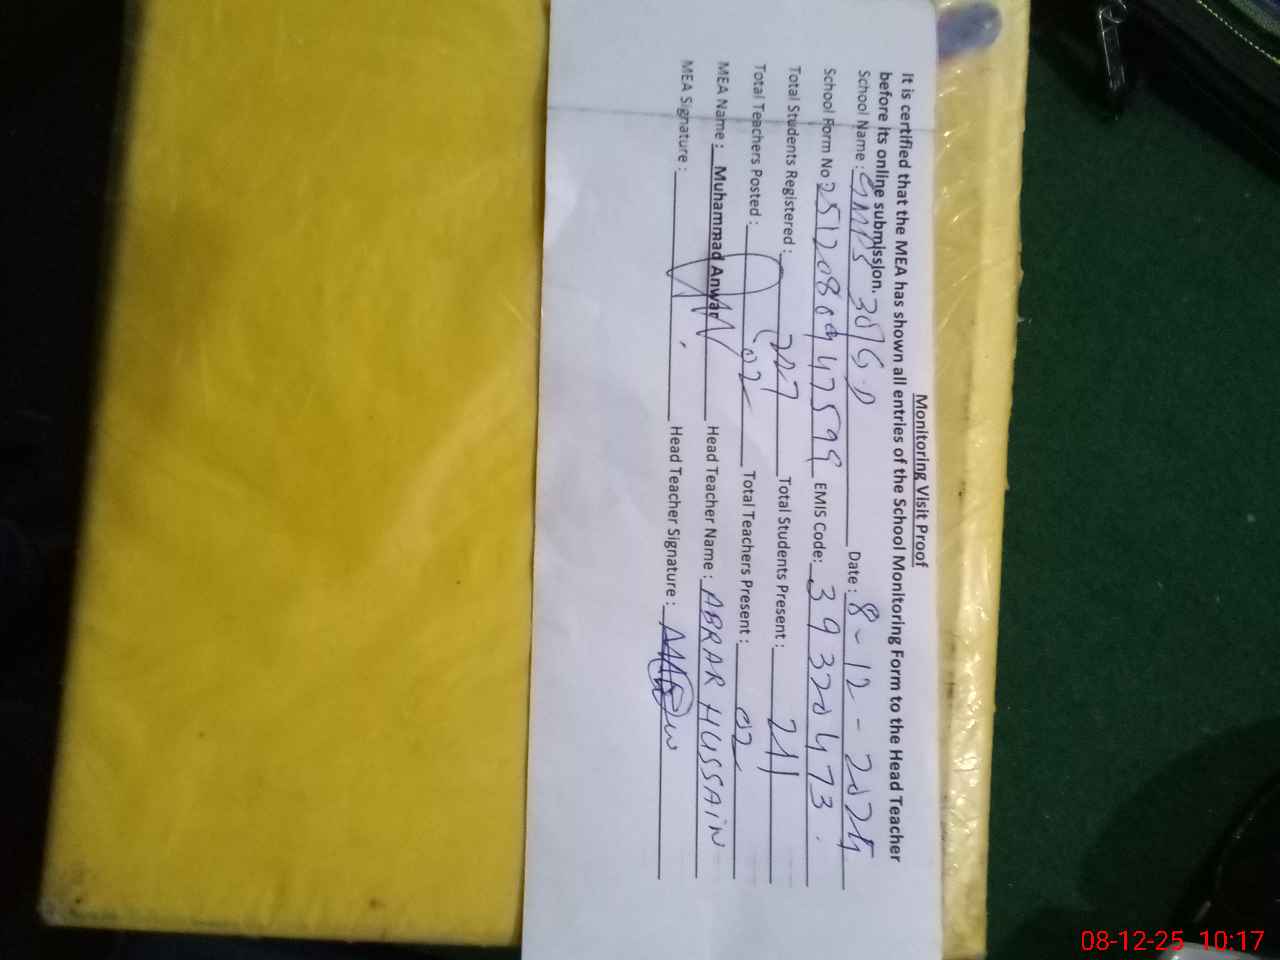 Monitoring Visit Proof
It is certified that the MEA has shown all entries of the School Monitoring Form to the Head Teacher
before its online submission.
School Name : GMPS 30/G.D Date : 8-12-2025
School Form No 251208094759 EMIS Code: 39320473
Total Students Registered : Total Students Present :
Total Teachers Posted : 02 Total Teachers Present : 02
MEA Name : Muhammad Anwar Head Teacher Name : ABRAR HUSSAIN
MEA Signature : Head Teacher Signature :
08-12-25 10:17